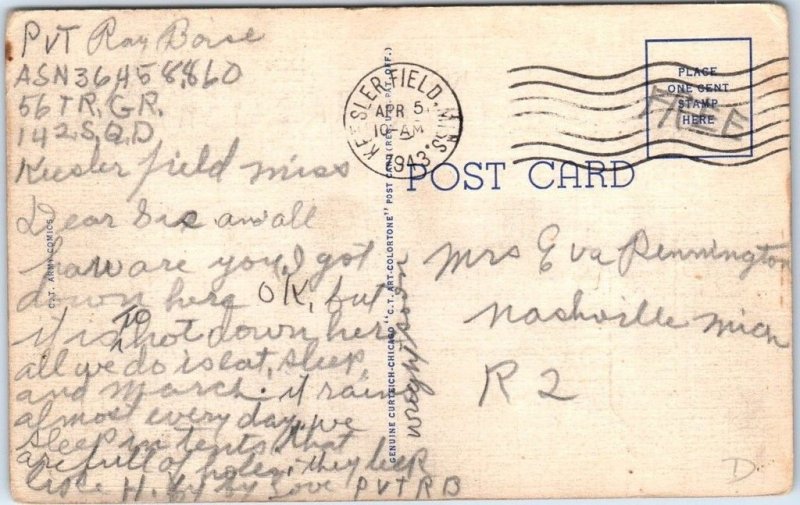 PVT Ray Borse
ASN36458,860
56 TR, GR,
142 S,Q,D
Keesler field Miss
Dear Sis and all
how are you, I got
down here OK, but
it is TO hot down here
all we do is eat, sleep,
and march. it rain
almost every day, we
sleep in tents that
are full of holes, they leek
like H. by by Love PVT RB
wright soon
C.T. ARMY COMICS
GENUINE CURTEICH-CHICAGO "C.T. ART-COLORTONE" POST CARD (REG. U.S. PAT. OFF.)
KEESLER FIELD, MISS.
APR 5
10 AM
1943
PLACE
ONE CENT
STAMP
HERE
FREE
POST CARD
Mrs Eva Pennington
Nashville Mich
R 2
D